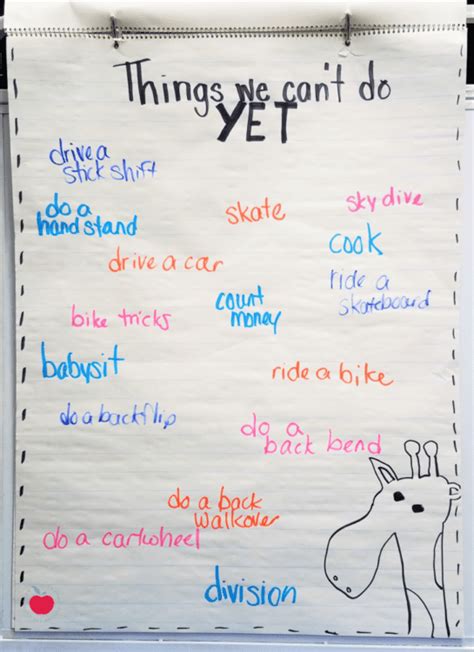 Things we can't do
YET
drive a
stick shift
do a
hand stand
skate
sky dive
cook
drive a car
ride a
skateboard
bike tricks
count
money
babysit
ride a bike
do a backflip
do a
back bend
do a back
walkover
do a cartwheel
division